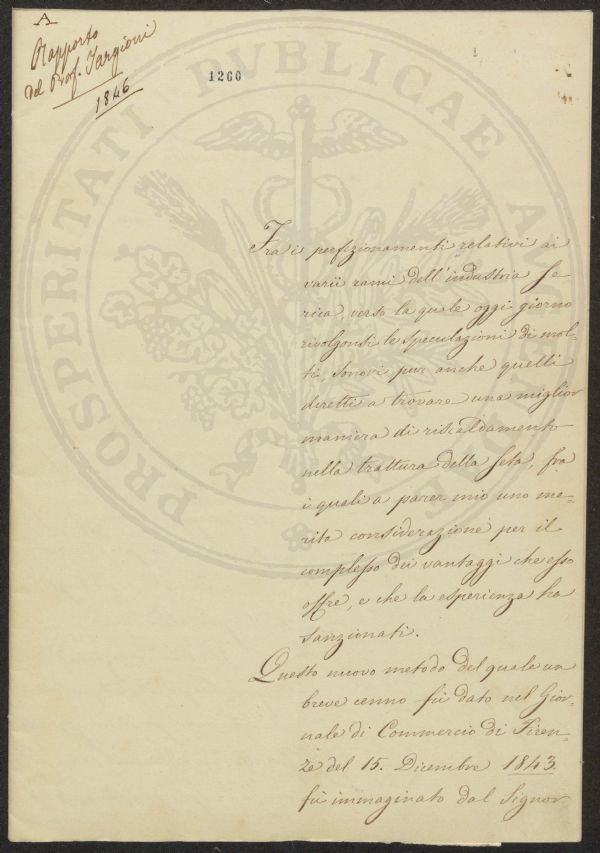 A
Rapporto
del Prof. Targioni
1846
1260
1
PROSPERITATI PUBLICAE
Fra i perfezionamenti relativi ai
varii rami dell'industria se
rica, verso la quale oggi giorno
rivolgonsi le speculazioni di mol-
ti, sonovi pur anche quelli
diretti a trovare una miglior
maniera di riscaldamento
nella trattura della seta, fra
i quali a parer mio uno me-
rita considerazione per il
complesso dei vantaggi che esso
offre, e che la esperienza ha
sanzionati.
Questo nuovo metodo del quale un
breve cenno fù dato nel Gior-
nale di Commercio di Firen-
ze del 15. Dicembre 1843.
fù immaginato dal Signor